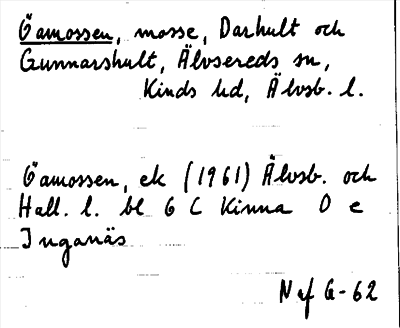 Öamossen, mosse, Darhult och
Gunnarshult, Älvsereds sn,
Kinds hd, Älvsb. l.
Öamossen, ek (1961) Älvsb. och
Hall. l. bl 6 C Kinna 0 e
Inganäs
N ef G-62